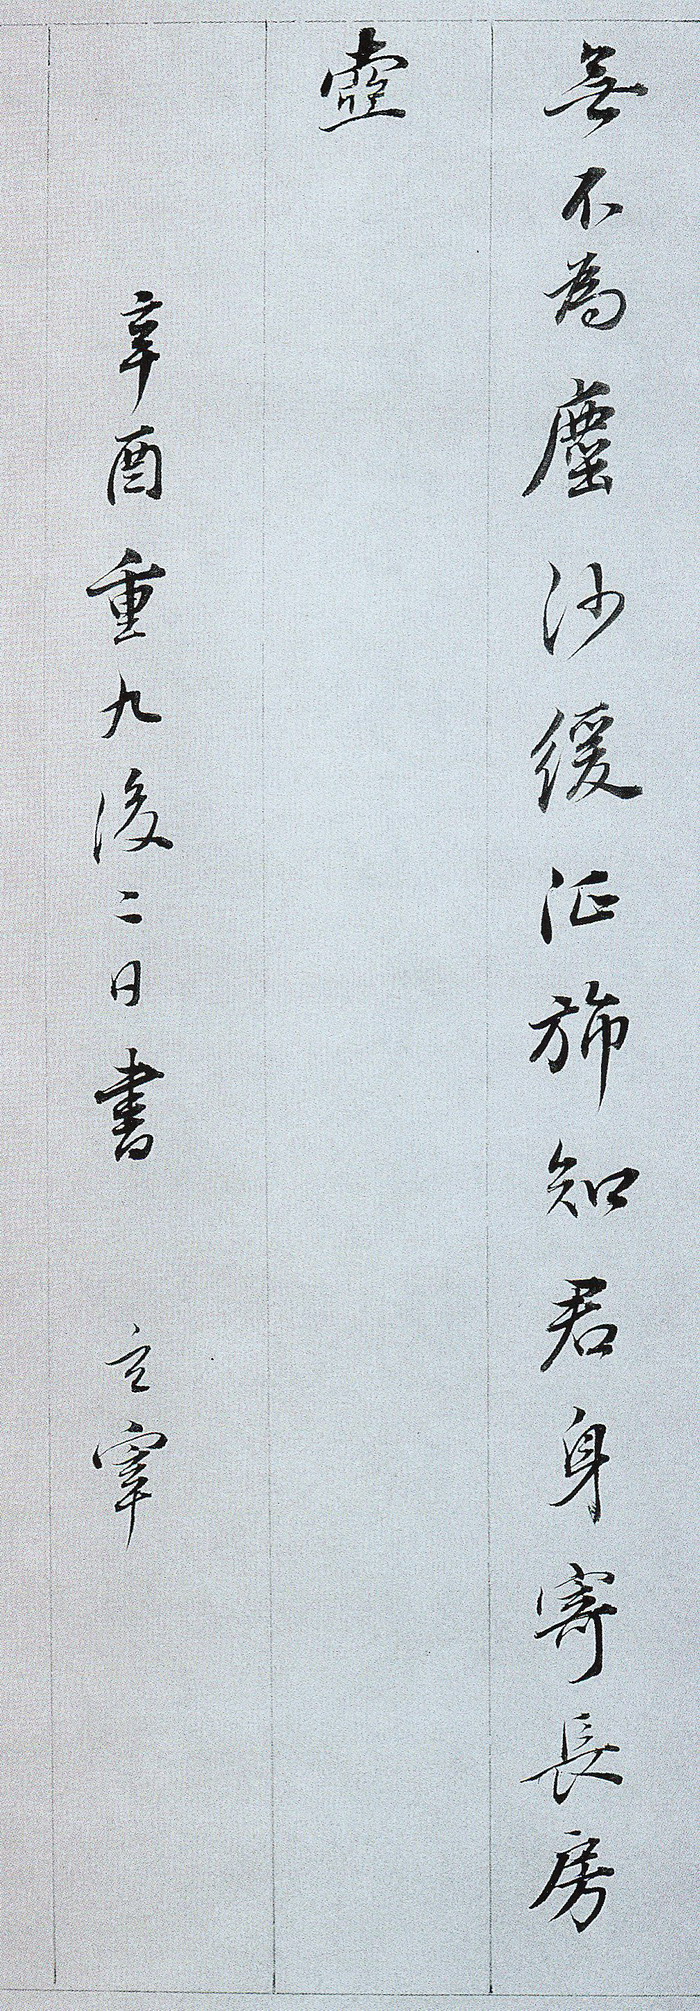 無不為塵沙緩征旆知君身寄長房
壺
辛酉重九後二日書 立宰